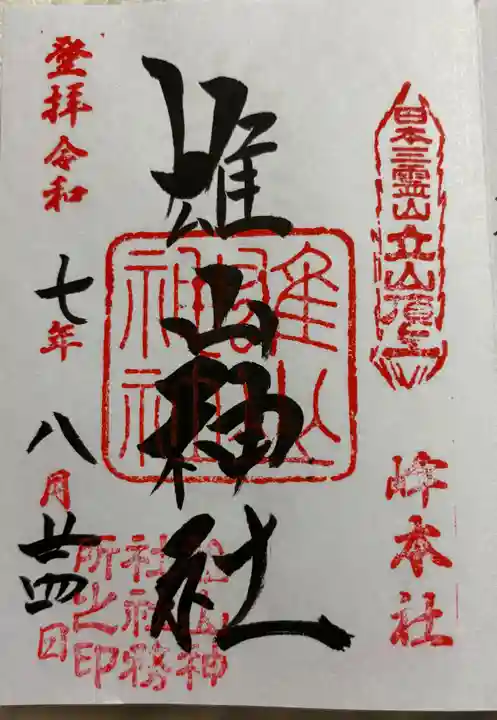 日本三霊山立山頂上
峰本社
雄山神社
雄山神社
登拝令和七年八月廿四日
雄山神社社務所之印